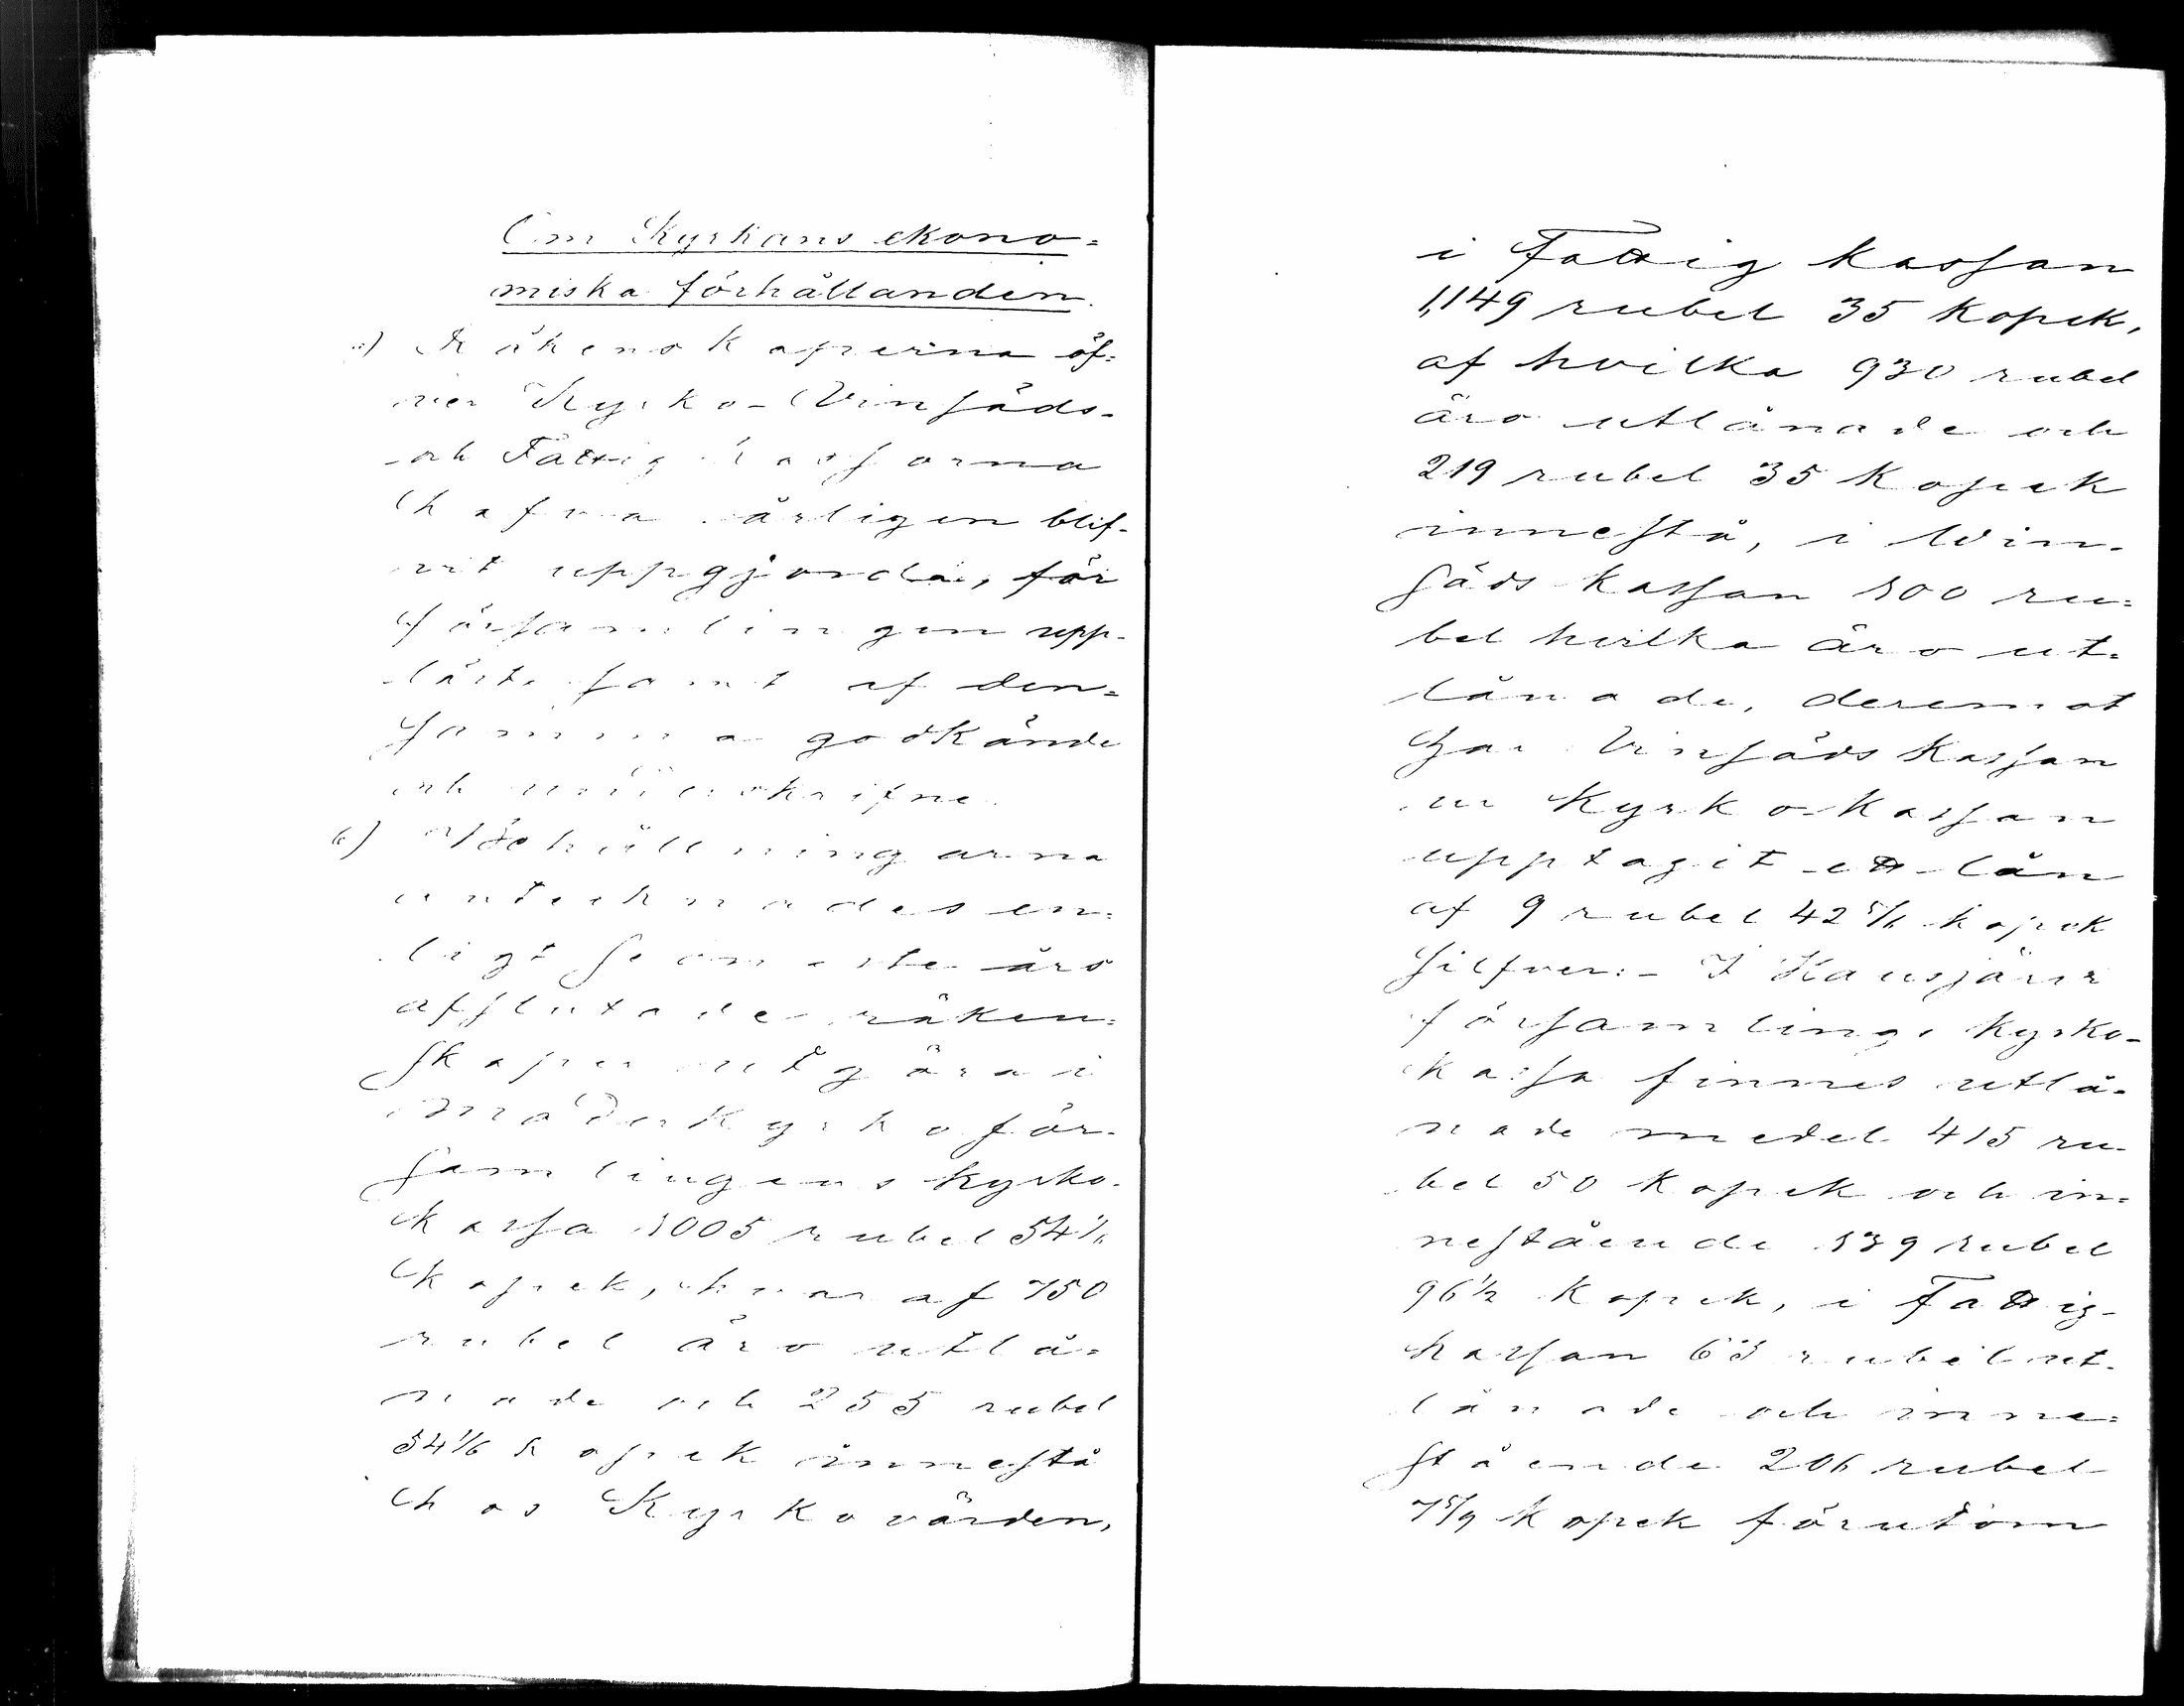 Om Kyrkans ekono=
miska förhållanden.
a) Räkenskaperna öf=
ver Kyrko- Vinsäds-
och Fattig kassorna
hafva årligen blif-
vit uppgjorda, för
församlingen upp-
läste samt af den=
samma godkände
och underskrifne.
b) Behållningarna
antecknades en=
ligt senaste års
afslutade räken=
skaper utgöra i
moderkyrkoför-
samlingens kyrko-
kassa 1005 rubel 54 1/6
kopek, hvaraf 750
rubel äro utlå=
nade och 255 rubel
54 1/6 kopek innestå
hos Kyrkovärden,
i Fattig kassan
1,149 rubel 35 kopek,
af hvilka 930 rubel
äro utlånade och
219 rubel 35 kopek
innestå, i Vin-
säds kassan 100 ru=
bel hvilka äro ut=
lånade, deremot
har Vinsäds kassan
ur Kyrko-kassan
upptagit ett lån
af 9 rubel 42 5/6 kopek
silfver:- I Kausjärvi
församlings kyrko-
kassa finnes utlå-
nade medel 415 ru-
bel 50 kopek och in=
nestående 139 rubel
96 1/2 kopek, i Fattig-
kassan 63 rubel ut-
lånade och inne=
stående 206 rubel
7 5/9 kopek förutom